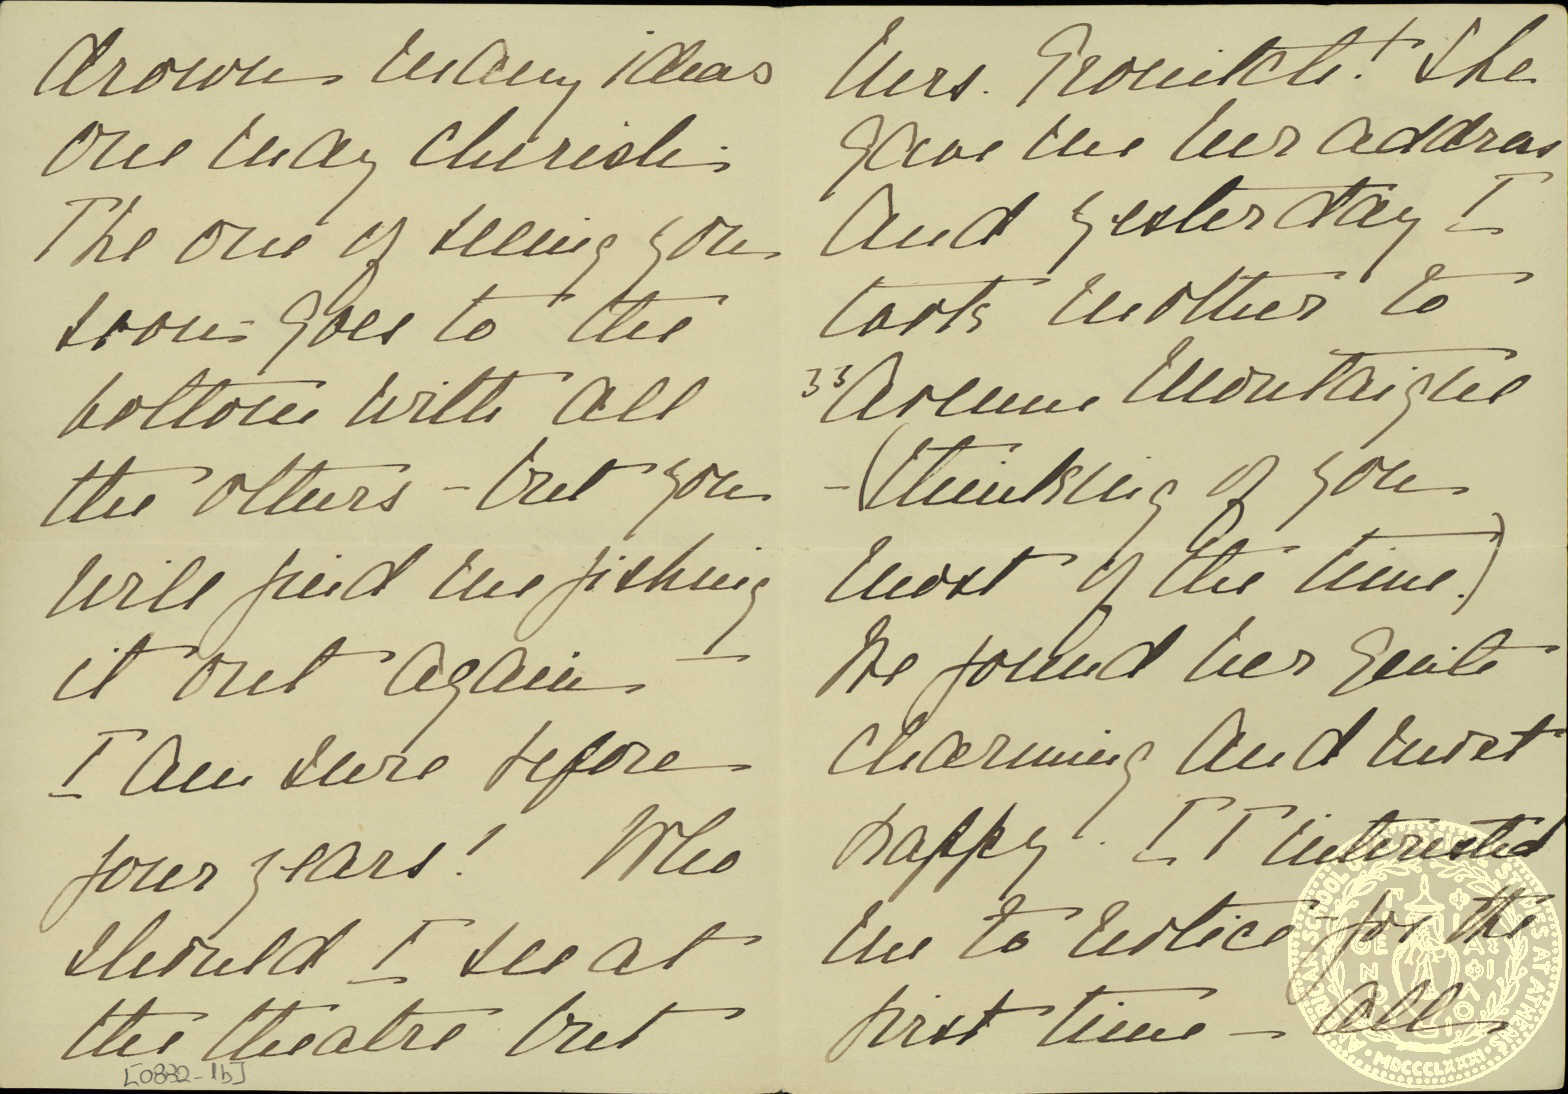 drown many ideas
one may cherish.
The one of seeing you
soon goes to the
bottom with all
the others - but you
will find me fishing
it out again -
I am sure before
four years! Who
should I see at
the theatre but
[0832-1b]
Mrs. ! She
gave me her address
and yesterday I
took mother to
33 Avenue Montaigne
- (thinking of you
most of the time.)
We found her quite
charming and most
happy. It interested
me to notice - for the
first time - all
AMERICAN SCHOOL OF CLASSICAL STUDIES AT ATHENS
MDCCCLXXXI